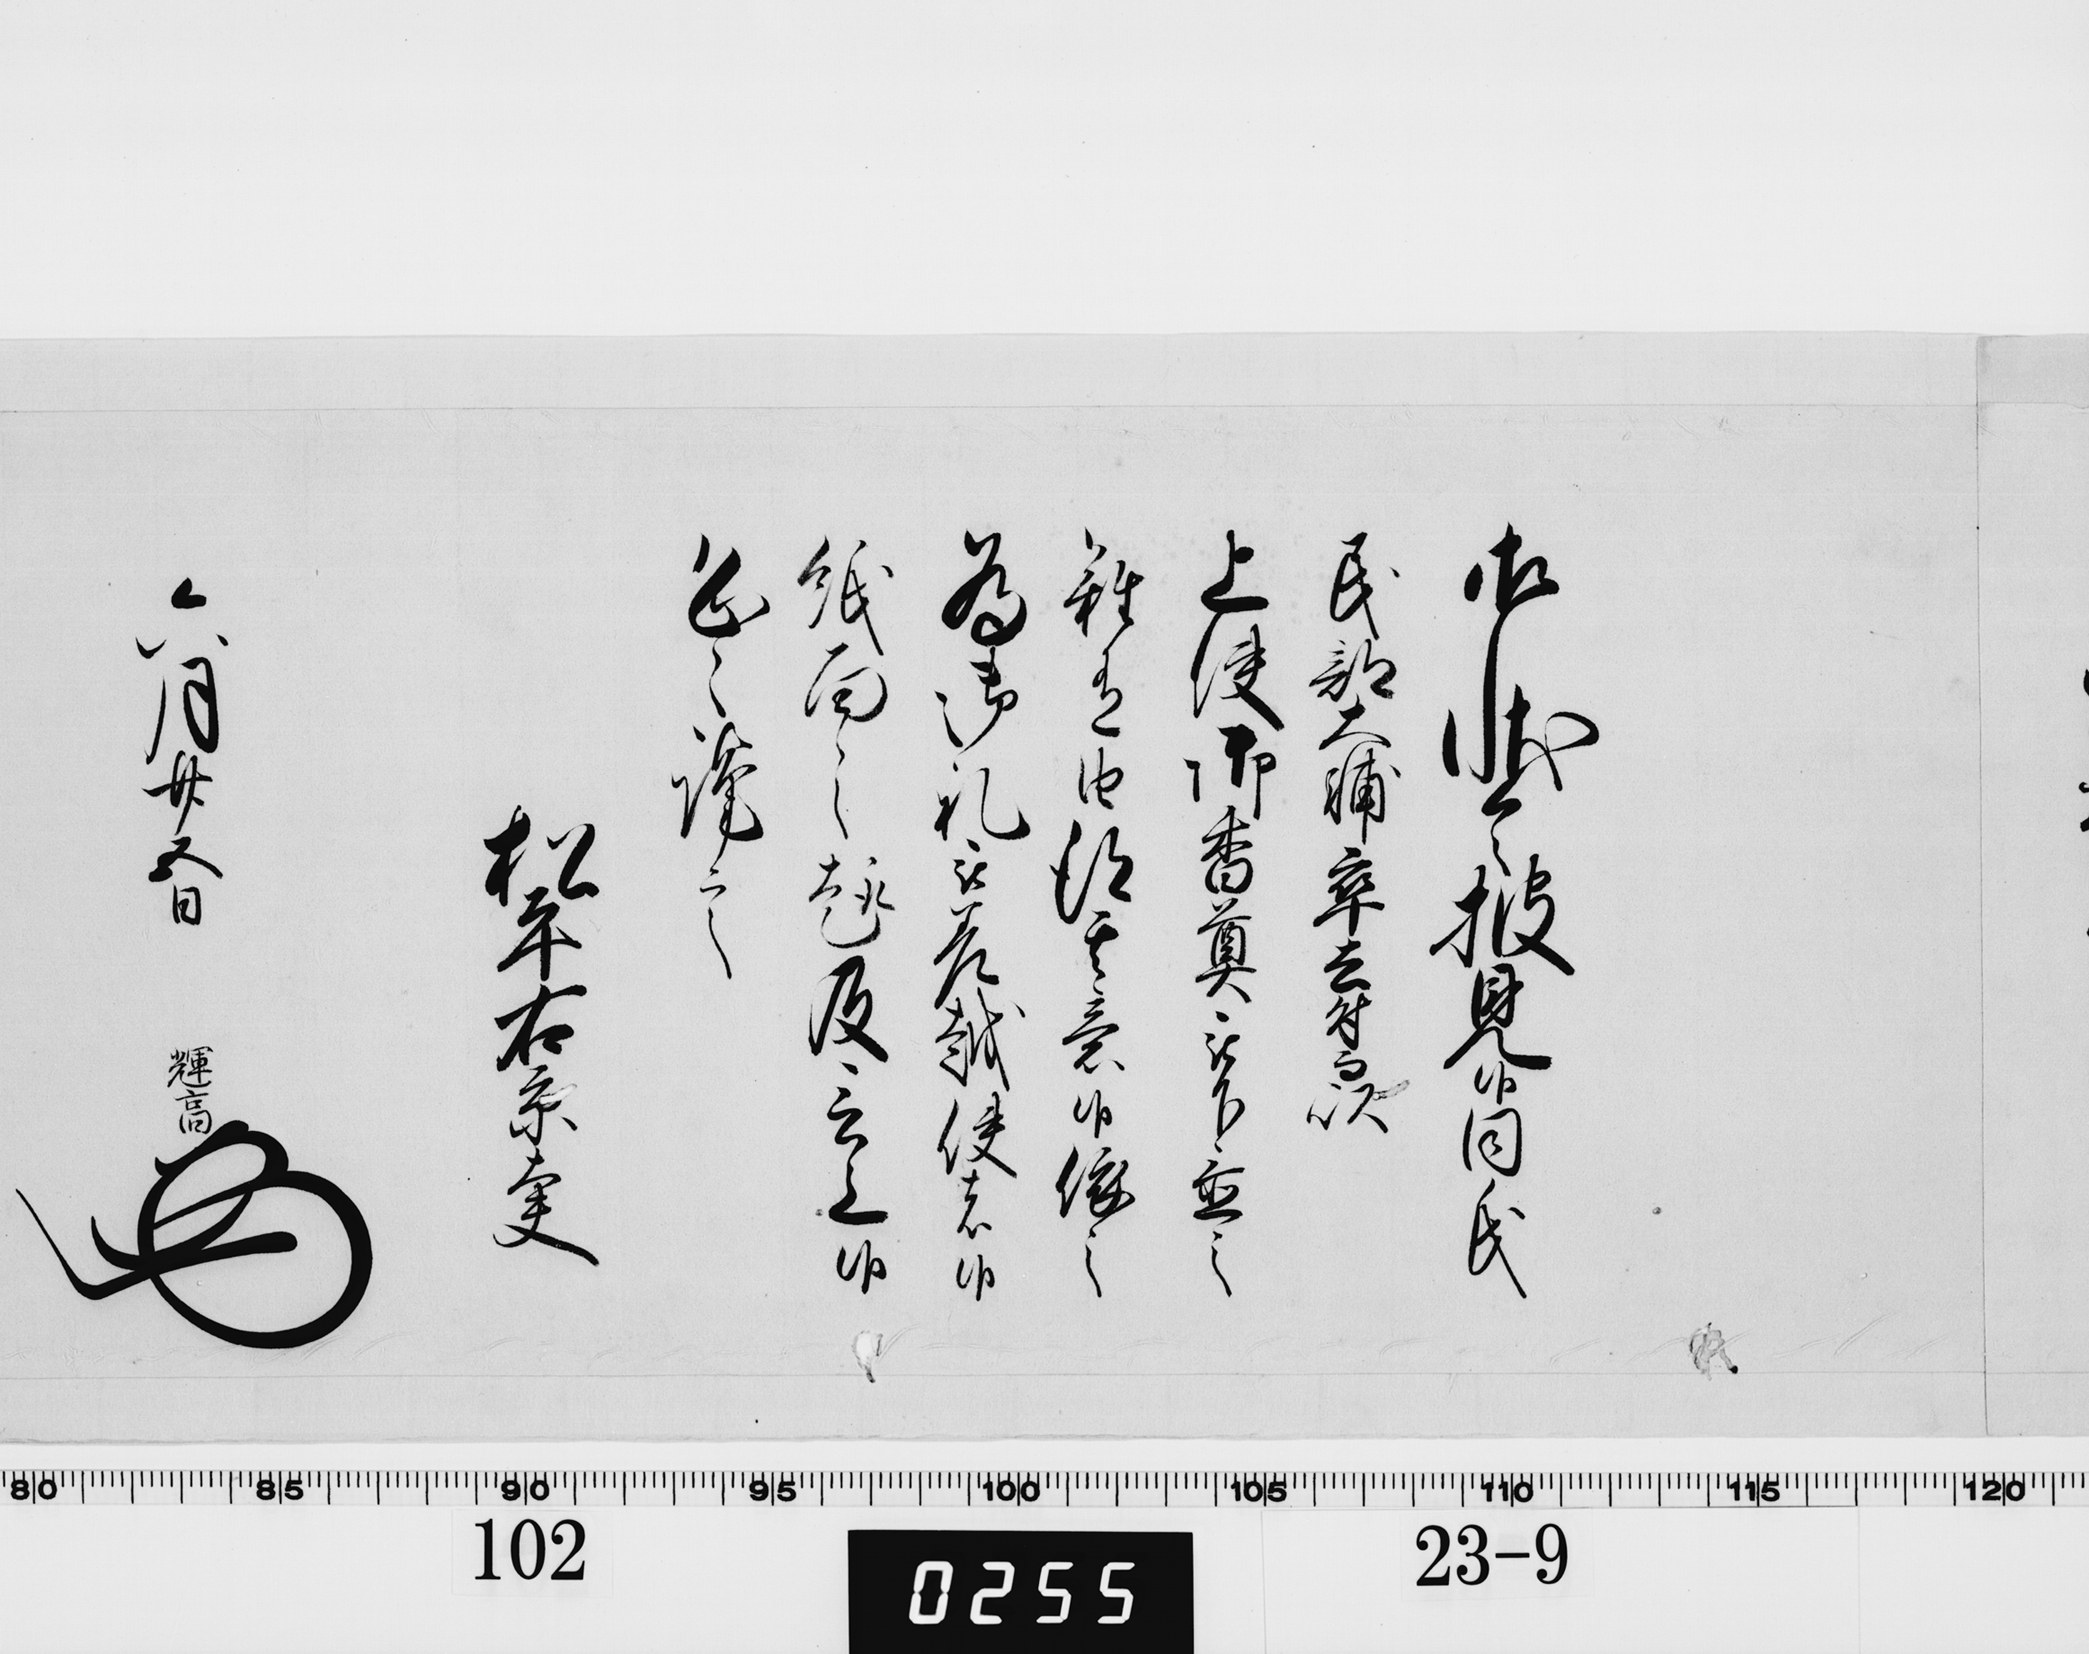 御状令披見候同氏
民部大輔卒去付而以
上使御香奠被下置之
難有由得其意候依之
為御礼被差越使者候
紙面之趣及言上候
恐々謹言
松平右京大夫
六月廿五日
輝高
80 85 90 95 100 105 110 115 120
102
0255
23-9